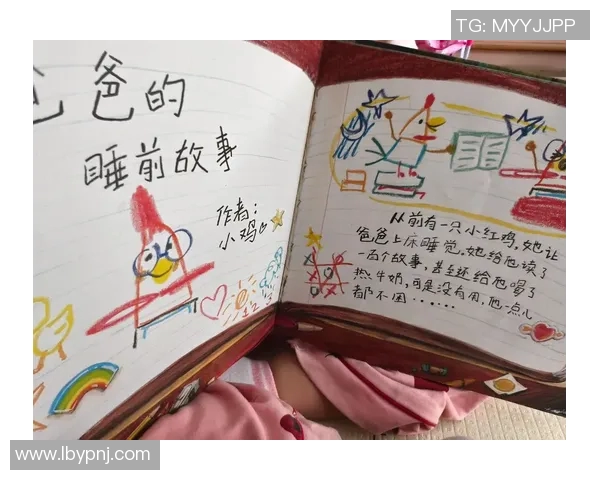 爸爸的
睡前故事
作者：
小鸡
1 2 3
从前有一只小红鸡，她让
爸爸上床睡觉，她给他读了
一百个故事，甚至还给他喝了
热牛奶，可是没有用，他一点儿
都不困……
TG: MYYJJPP
www.lbypnj.com